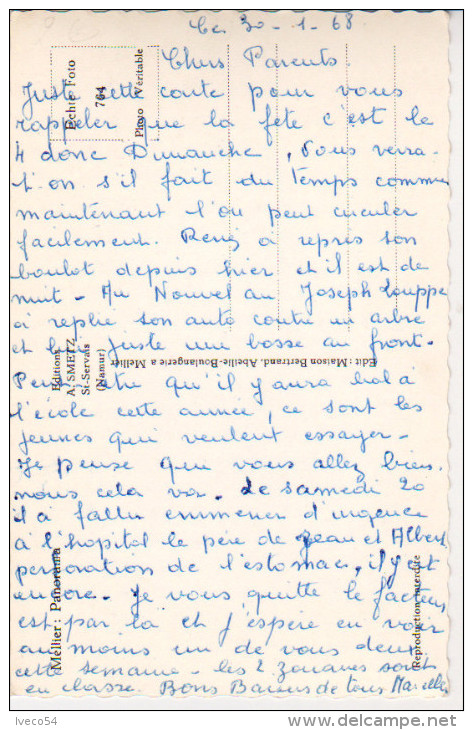 Ce 30-1-68
Chers Parents.
Juste cette carte pour vous
rappeler que la fête c'est le
4 donc Dimanche, Vous verra-
t'on s'il fait du temps comme
maintenant l'on peut circuler
facilement. René a repris son
boulot depuis hier et il est de
nuit - Au Nouvel an Joseph Louppe
a replié son auto contre un arbre
et lui juste une bosse au front-
Peut être qu'il y aura bal à
l'école cette année, ce sont les
jeunes qui veulent essayer-
Je pense que vous allez bien,
nous cela va. Le samedi 20
il a fallu emmener d'urgence
à l'hopital le père de Jean et Albert
perforation de l'estomac, il y est
encore. Je vous quitte le facteur
est par là et j'espère en voir
au moins un de vous deux
cette semaine - les 2 zouaves sont
en classe. Bons Baisers de tous Marcelle
Echte Foto
764
Photo Véritable
Editions
A. SMETZ
St-Servais
(Namur)
Edit: Maison Bertrand. Abeille-Boulangerie a Mellier
Mellier: Panorama
(Reproduction interdite
Iveco54
www.delcampe.net